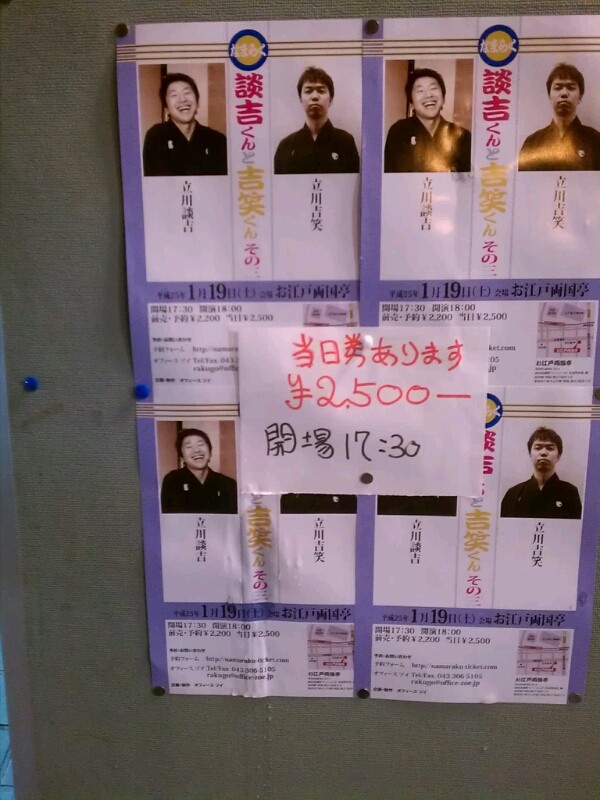 なまらく
談吉くんと吉笑くん その三
立川談吉
立川吉笑
平成25年1月19日(土) 会場 お江戸両国亭
開場17:30 開演18:00
前売・予約¥2,200 当日¥2,500
予約・お問い合わせ
予約フォーム http://
オフィース ゾイ Tel/Fax 043
rakugo@office
企画・制作 オフィース ゾイ
なまらく
談吉くんと吉笑くん その三
立川談吉
立川吉笑
平成25年1月19日(土) 会場 お江戸両国亭
開場17:30 開演18:00
前売・予約¥2,200 当日¥2,500
ticket.com
お江戸両国亭
当日券あります
¥2,500—
開場17:30
と吉笑くん その三
立川談吉
立川吉笑
平成25年1月19日(土) 会場 お江戸両国亭
開場17:30 開演18:00
前売・予約¥2,200 当日¥2,500
予約・お問い合わせ
予約フォーム http://namaraku-ticket.com
オフィース ゾイ Tel/Fax 043 306 5105
rakugo@office-zoe.jp
企画・制作 オフィース ゾイ
お江戸両国亭
談吉くんと吉笑くん その三
立川談吉
立川吉笑
平成25年1月19日(土) 会場 お江戸両国亭
開場17:30 開演18:00
前売・予約¥2,200 当日¥2,500
予約・お問い合わせ
予約フォーム http://namaraku-ticket.com
オフィース ゾイ Tel/Fax 043 306 5105
rakugo@office-zoe.jp
企画・制作 オフィース ゾイ
お江戸両国亭